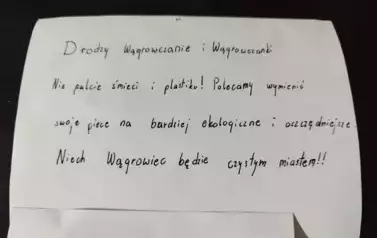 Drodzy Wągrowczanie i Wągrowczanki
Nie palcie śmieci i plastiku! Polecamy wymienić
swoje piece na bardziej ekologiczne i oszczędniejsze.
Niech Wągrowiec będzie czystym miastem!!